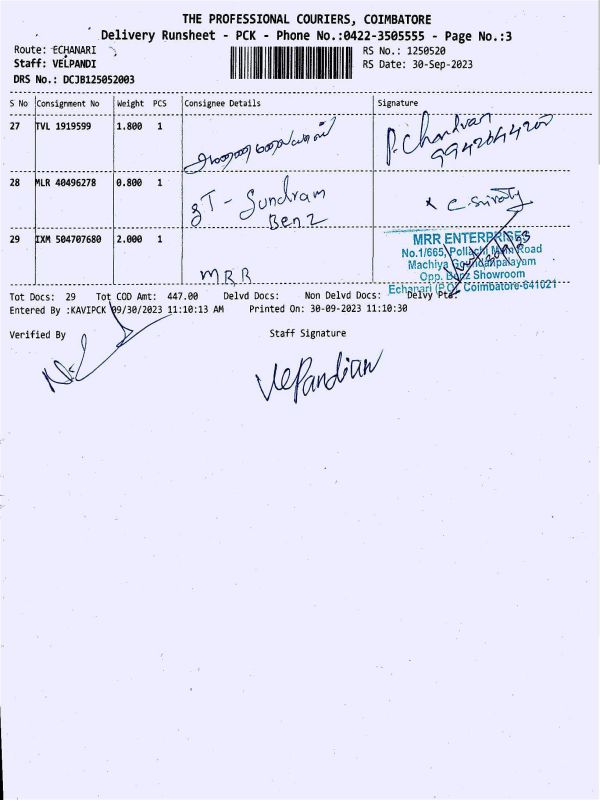 THE PROFESSIONAL COURIERS, COIMBATORE
Delivery Runsheet - PCK - Phone No.:0422-3505555 - Page No.:3
Route: ECHANARI
RS No.: 1250520
Staff: VELPANDI
RS Date: 30-Sep-2023
DRS No.: DCJB125052003
S No Consignment No Weight PCS Consignee Details Signature
27 TVL 1919599 1.800 1
P. Chandran
28 MLR 40496278 0.800 1 Sundram
Benz
29 IXM 504707680 2.000 1 MRR
MRR ENTERPRISES
No.1/665, Pollachi Main Road
Machiya Goundanpalayam
Opp. Benz Showroom
Echanari (P.O), Coimbatore-641021
Tot Docs: 29 Tot COD Amt: 447.00 Delvd Docs: Non Delvd Docs: Delvy Pts:
Entered By :KAVIPCK 09/30/2023 11:10:13 AM Printed On: 30-09-2023 11:10:30
Verified By Staff Signature
VelPandian